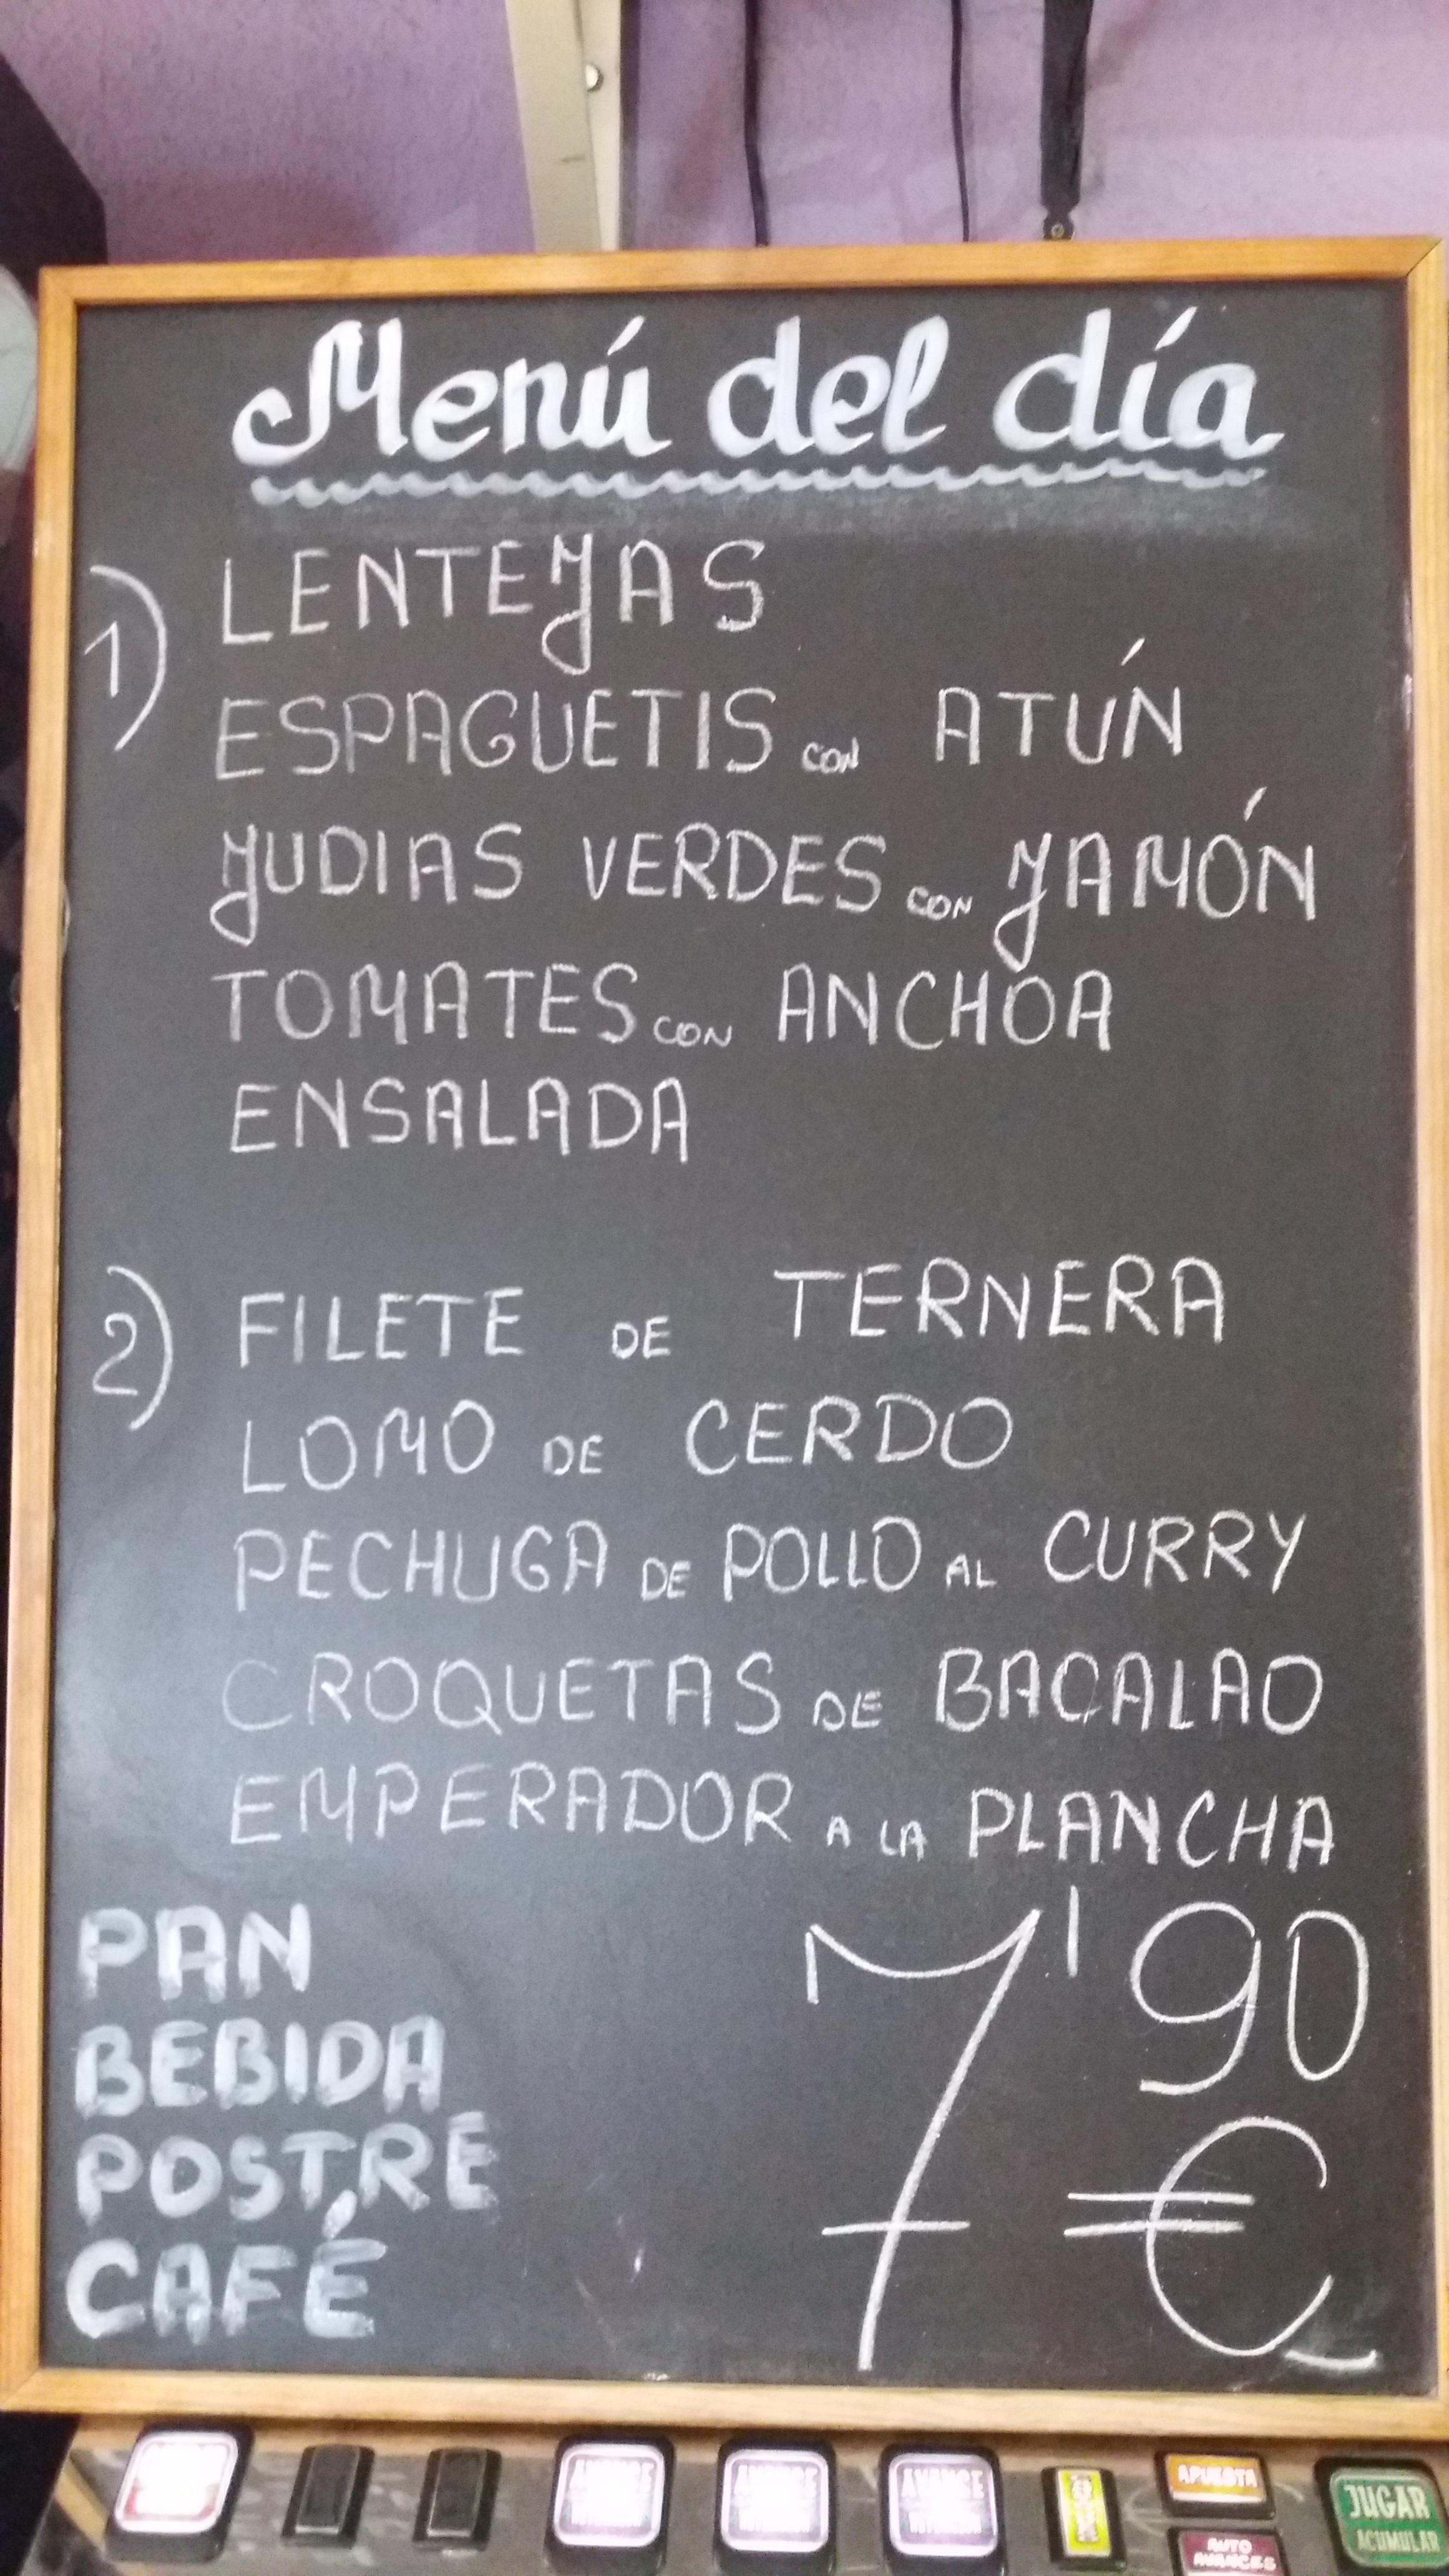 Menú del día
1) LENTEJAS
ESPAGUETIS CON ATÚN
JUDIAS VERDES CON JAMÓN
TOMATES CON ANCHOA
ENSALADA
2) FILETE DE TERNERA
LOMO DE CERDO
PECHUGA DE POLLO AL CURRY
CROQUETAS DE BACALAO
EMPERADOR A LA PLANCHA
PAN
BEBIDA
POSTRE
CAFÉ
7'90
€
AVANCE
AVANCE
AVANCE
APUESTA
AUTO
AVANCES
JUGAR
ACUMULAR